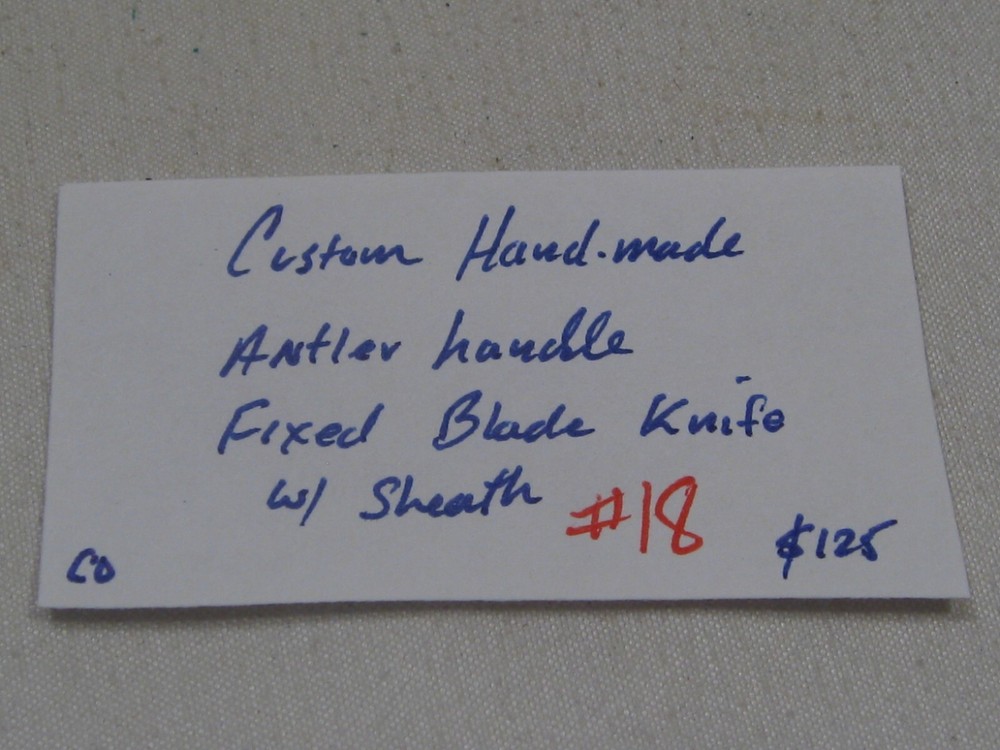 Custom Hand-made
Antler handle
Fixed Blade Knife
w/ Sheath #18
CO $125